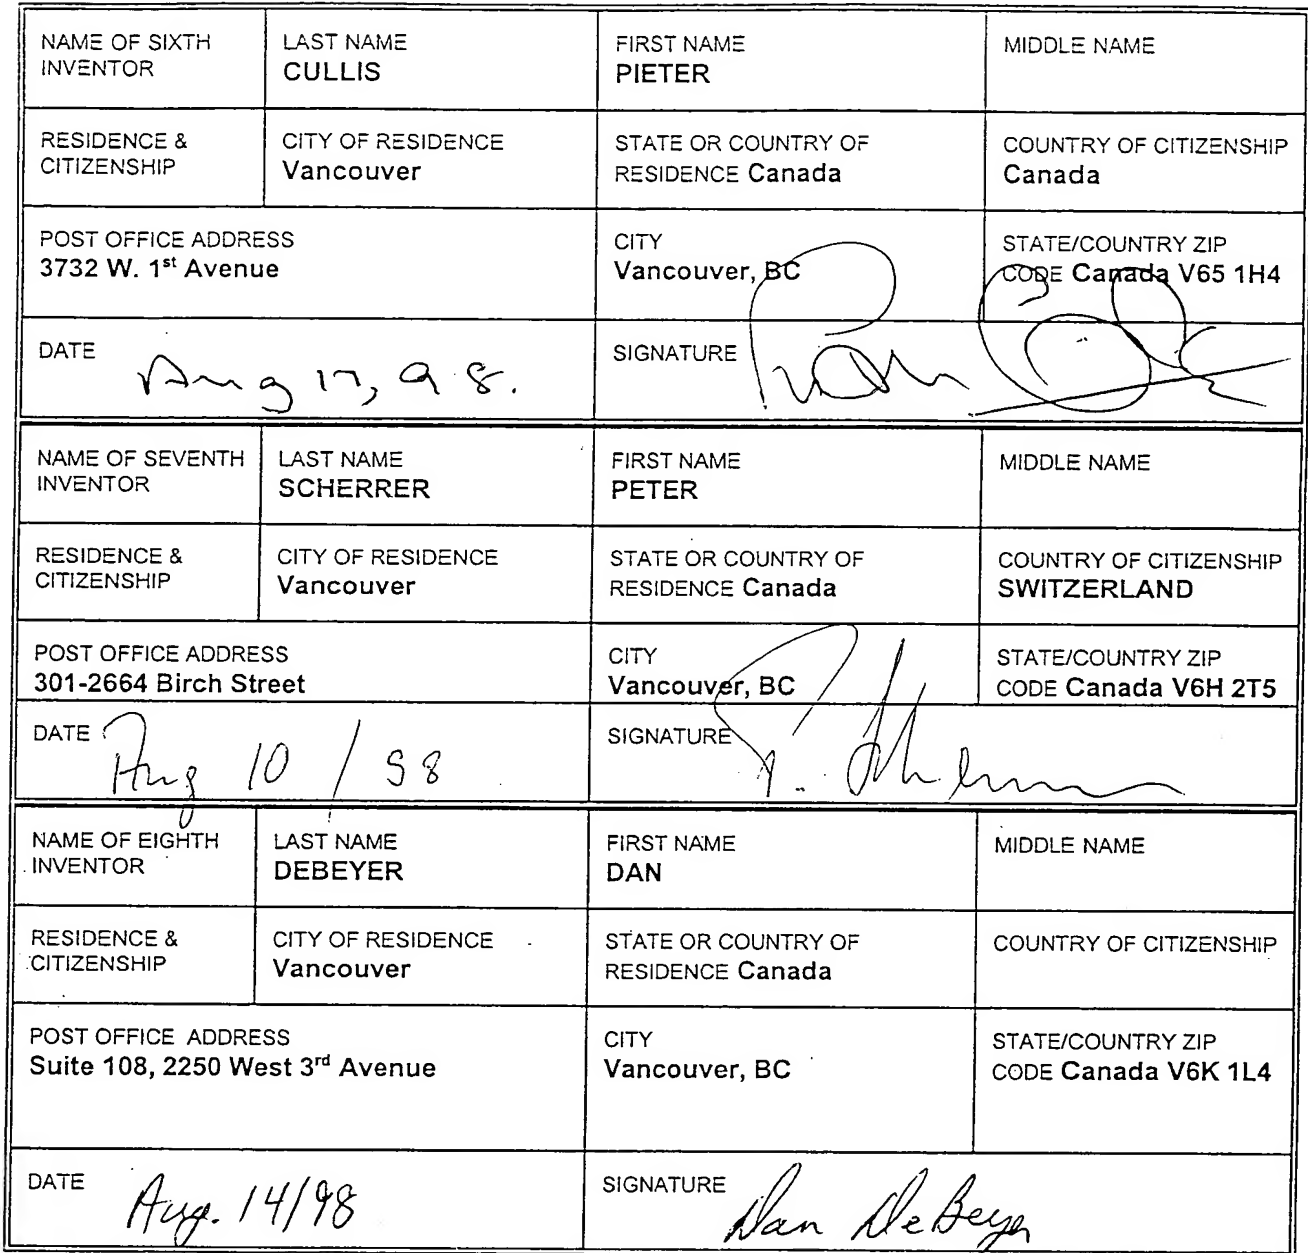 NAME OF SIXTH INVENTOR
LAST NAME
CULLIS
FIRST NAME
PIETER
MIDDLE NAME
RESIDENCE & CITIZENSHIP
CITY OF RESIDENCE
Vancouver
STATE OR COUNTRY OF
RESIDENCE Canada
COUNTRY OF CITIZENSHIP
Canada
POST OFFICE ADDRESS
3732 W. 1st Avenue
CITY
Vancouver, BC
STATE/COUNTRY ZIP
CODE Canada V65 1H4
DATE
Aug 17, 98.
SIGNATURE
NAME OF SEVENTH INVENTOR
LAST NAME
SCHERRER
FIRST NAME
PETER
MIDDLE NAME
RESIDENCE & CITIZENSHIP
CITY OF RESIDENCE
Vancouver
STATE OR COUNTRY OF
RESIDENCE Canada
COUNTRY OF CITIZENSHIP
SWITZERLAND
POST OFFICE ADDRESS
301-2664 Birch Street
CITY
Vancouver, BC
STATE/COUNTRY ZIP
CODE Canada V6H 2T5
DATE
Aug 10 / 98
SIGNATURE
NAME OF EIGHTH INVENTOR
LAST NAME
DEBEYER
FIRST NAME
DAN
MIDDLE NAME
RESIDENCE & CITIZENSHIP
CITY OF RESIDENCE
Vancouver
STATE OR COUNTRY OF
RESIDENCE Canada
COUNTRY OF CITIZENSHIP
POST OFFICE ADDRESS
Suite 108, 2250 West 3rd Avenue
CITY
Vancouver, BC
STATE/COUNTRY ZIP
CODE Canada V6K 1L4
DATE
Aug. 14/98
SIGNATURE
Dan DeBeyer